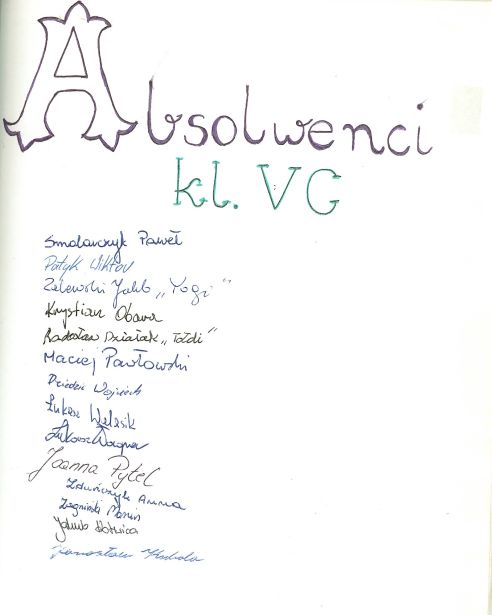 Absolwenci
kl. VG
Smolarczyk Paweł
Patyk Wiktor
Zalewski Jakub „Yogi”
Krystian Obara
Radosław Działak „Tołdi”
Maciej Pawłowski
Wojciech
Łukasz Walasik
Łukasz Wagner
Joanna Pytel
Anna
Zagniński Marcin
Jakub
Jarosław